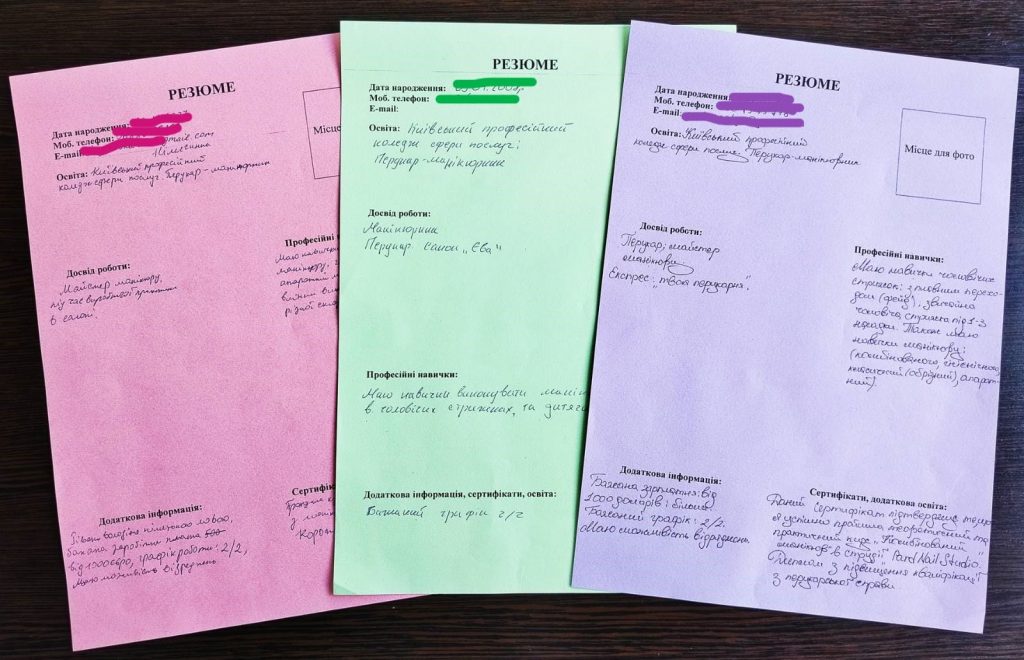 РЕЗЮМЕ
Дата народження:
Моб. телефон:
E-mail
Місце
Освіта: Київський професійний
коледж сфери послуг. Перукар-манікюрник
Професійні
Маю навички
манікюру
апаратний
Досвід роботи:
Майстер манікюру,
під час виробничої практики
в салоні.
Сертифі
Додаткова інформація:
Вільно володію німецькою мовою,
бажана заробітна плата
від 1000 євро, графік роботи: 2/2,
Маю можливість відряджень
РЕЗЮМЕ
Дата народження:
Моб. телефон:
E-mail:
Освіта: Київський професійний
коледж сфери послуг:
Перукар-манікюрник
Досвід роботи:
Манікюрник
Перукар. Салон „Єва"
Професійні навички:
Маю навички виконувати манік
в чоловічих стрижках, та дитяч
Додаткова інформація, сертифікати, освіта:
Бажаний графік 2/2
РЕЗЮМЕ
Дата народження:
Моб. телефон:
E-mail:
Місце для фото
Освіта: Київський професійний
коледж сфери послуг. Перукар-манікюрник
Досвід роботи:
Перукар; майстер
манікюру.
Експрес: „твоя перукарня".
Професійні навички:
Маю навички чоловічих
стрижок: з плавним перехо-
дом (фейд), звичайна
чоловіча стрижка під 1-3
насадки. Також маю
навички манікюру:
(комбінованого, гігієнічного,
класичний (обрізний), апарат-
ний)
Додаткова інформація:
Бажана зарплатня: від
1000 доларів і більше
Бажаний графік: 2/2.
Маю можливість відряджень
Сертифікати, додаткова освіта:
Даний Сертифікат підтверджує те, що
я успішно пройшла теоретичний та
практичний курс „Комбінований
манікюр" в студії Nail Studio.
Диплом з підвищення кваліфікації
з перукарської справи.